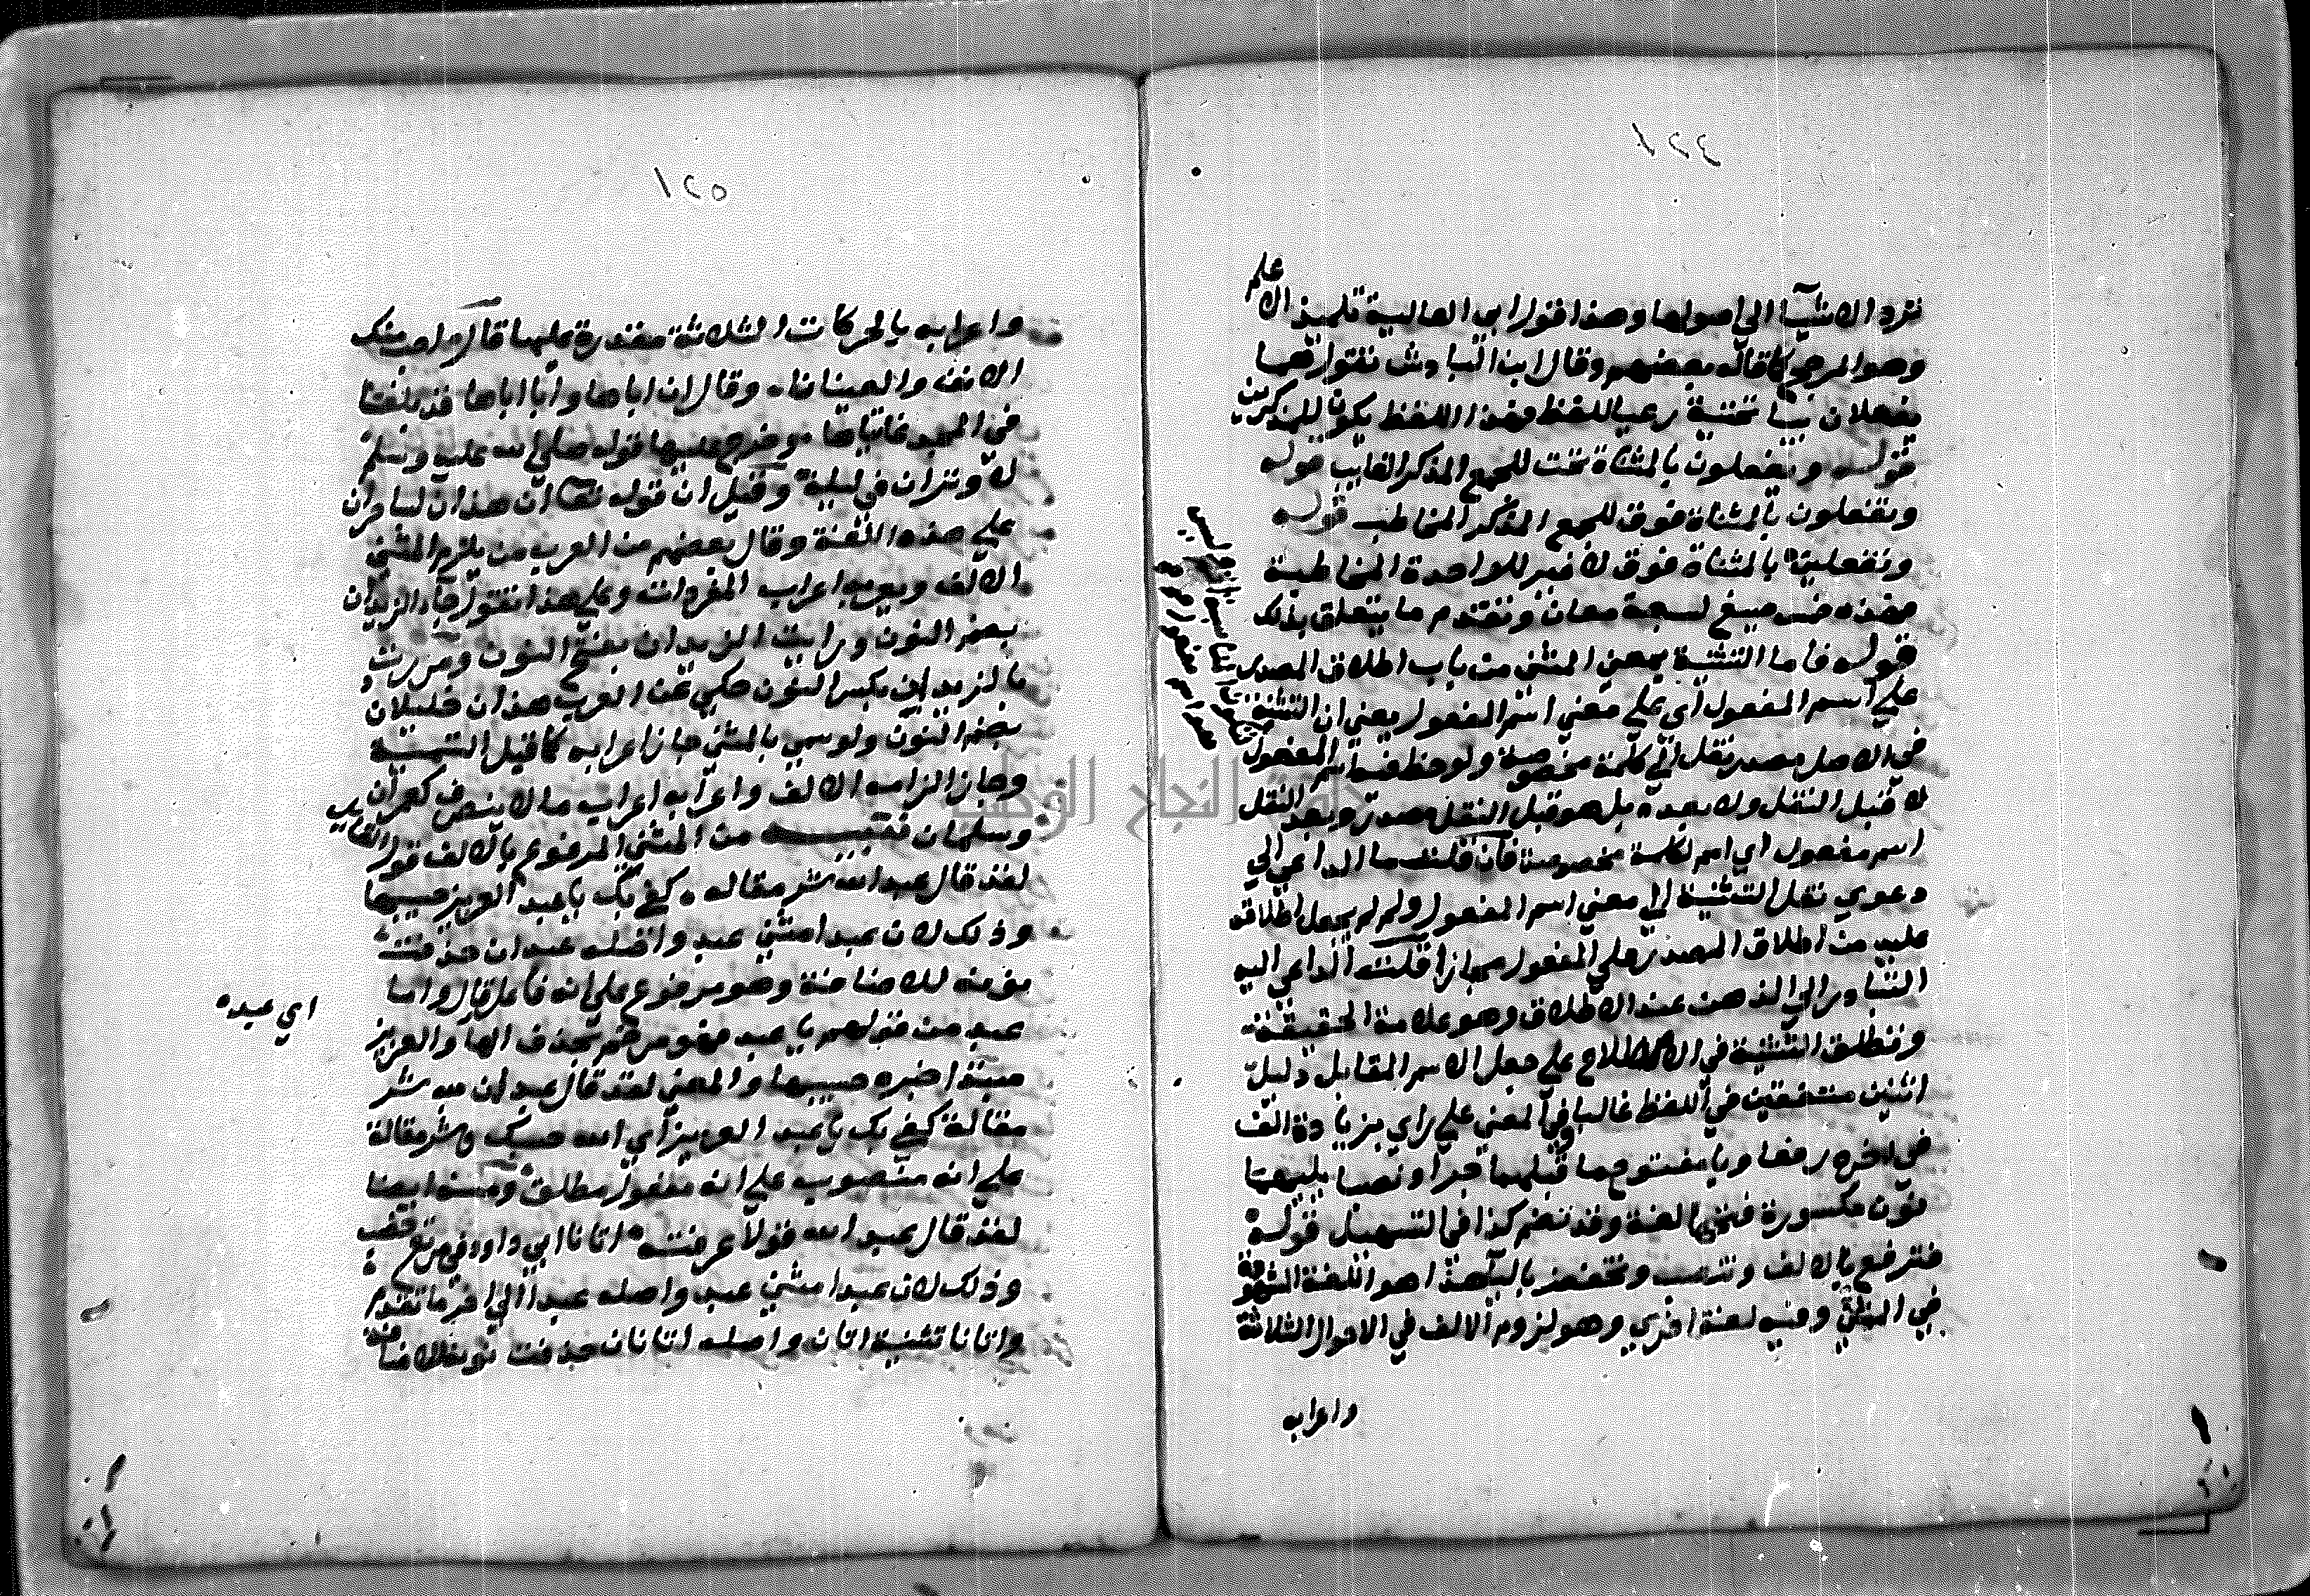 ١٢٤
ترد الاشيآ الي اصولها وهذا قول ابي العالية تلميذ الاعلم
وهو المرجو كما قاله بعضهم وقال ابن الباذش نقول هما
يفعلان بيا تحتية رعيا للفظ فهذا اللفظ يكون للمذكرين
قوله ويفعلون بالمثناة تحت للجمع المذكر الغايب قوله
وتفعلون بالمثناة فوق للجمع المذكر المخاطب قوله
وتفعلين بالمثناة فوق لا غير للواحدة المخاطبة
فهذه خمس صيغ لسبعة معان وتقدم ما يتعلق بذلك
قوله فاما التثنية بمعني المثني من باب اطلاق المصدر
علي اسم المفعول اي علي معني اسم المفعول يعني ان التثنية
في الاصل مصدر نقل الي كلمة مخصوصة ولوحظ فيه اسم المفعول
لا قبل النقل ولا بعده بل هو قبل النقل مصدر وبعد النقل
اسم مفعول اي اسم لكلمة مخصوصة فان قلت ما الداعي الي
دعوي نقل التثنية الي معني اسم المفعول ولم لم يجعل اطلاقه
عليه من اطلاق المصدر علي المفعول مجازا قلت الداعي اليه
التبادر الي الذهن عند الاطلاق وهو علامة الحقيقة
وتطلق التثنية في الاصطلاح علي جعل الاسم المقابل دليل
اثنين متفقين في اللفظ غالبا وفي المعني علي راي بزيادة الف
في اخره رفعا ويا مفتوح ما قبلهما جرا ونصبا يليهما
نون مكسورة فتحها لغة وقد تضم كذا في التسهيل قوله
فترفع بالالف وتنصب وتخفض باليآ هذا هو اللغة المشهورة
في المثني وفيه لغة اخري وهو لزوم الالف في الاحوال الثلاثة
واعرابه
١٢٥
واعرابه بالحركات الثلاثة مقدرة عليها قال
الانف والعينانا وقال ان اباها وابا اباها قد بلغا
في المجد غايتاها وخرج عليها قوله صلي الله عليه وسلم
لا وتران في ليلة وقيل ان قوله تعا ان هذان لساحران
علي هذه اللغة وقال بعضهم من العرب من يلزم المثني
الالف ويعربه اعراب المفردات وعلي هذا نقول جآ الزيدان
بضم النون ورايت الزيدان بفتح النون ومررت
بالزيدان بكسر النون حكي عن العرب هذان خليلان
بضم النون ولو سمي بالمثني جاز اعرابه كما قبل التسمية
وجاز الزامه الالف واعرابه اعراب ما لا ينصرف كعمران
وسلمان تنبيه من المثني المرفوع بالالف قول القايل
لقد قال عبدا الله شر مقاله كفي بك يا عبد العزيز حسيبها
وذلك لان عبدا مثني عبد واصله عبدان حذفت
نونه للاضافة وهو مرفوع علي انه فاعل قال واما
عبد من قولهم يا عبد فهو مرخم بحذف الها والعزيز
اي عبده
مبتدا خبره حسيبها والمعني لقد قال عبدان لله شر
مقالة كفي بك يا عبد العزيز اي الله حسبك وشر مقالة
علي انه منصوب علي انه مفعول مطلق ومنه ايضا
لقد قال عبدا الله قولا عرفته اتانا ابي داود في مرتع خصب
وذلك لان عبدا مثني عبد واصله عبدا الي اخر ما تقدم
واتانا تثنية اتان واصله اتانان حذفت نونه للاضافة